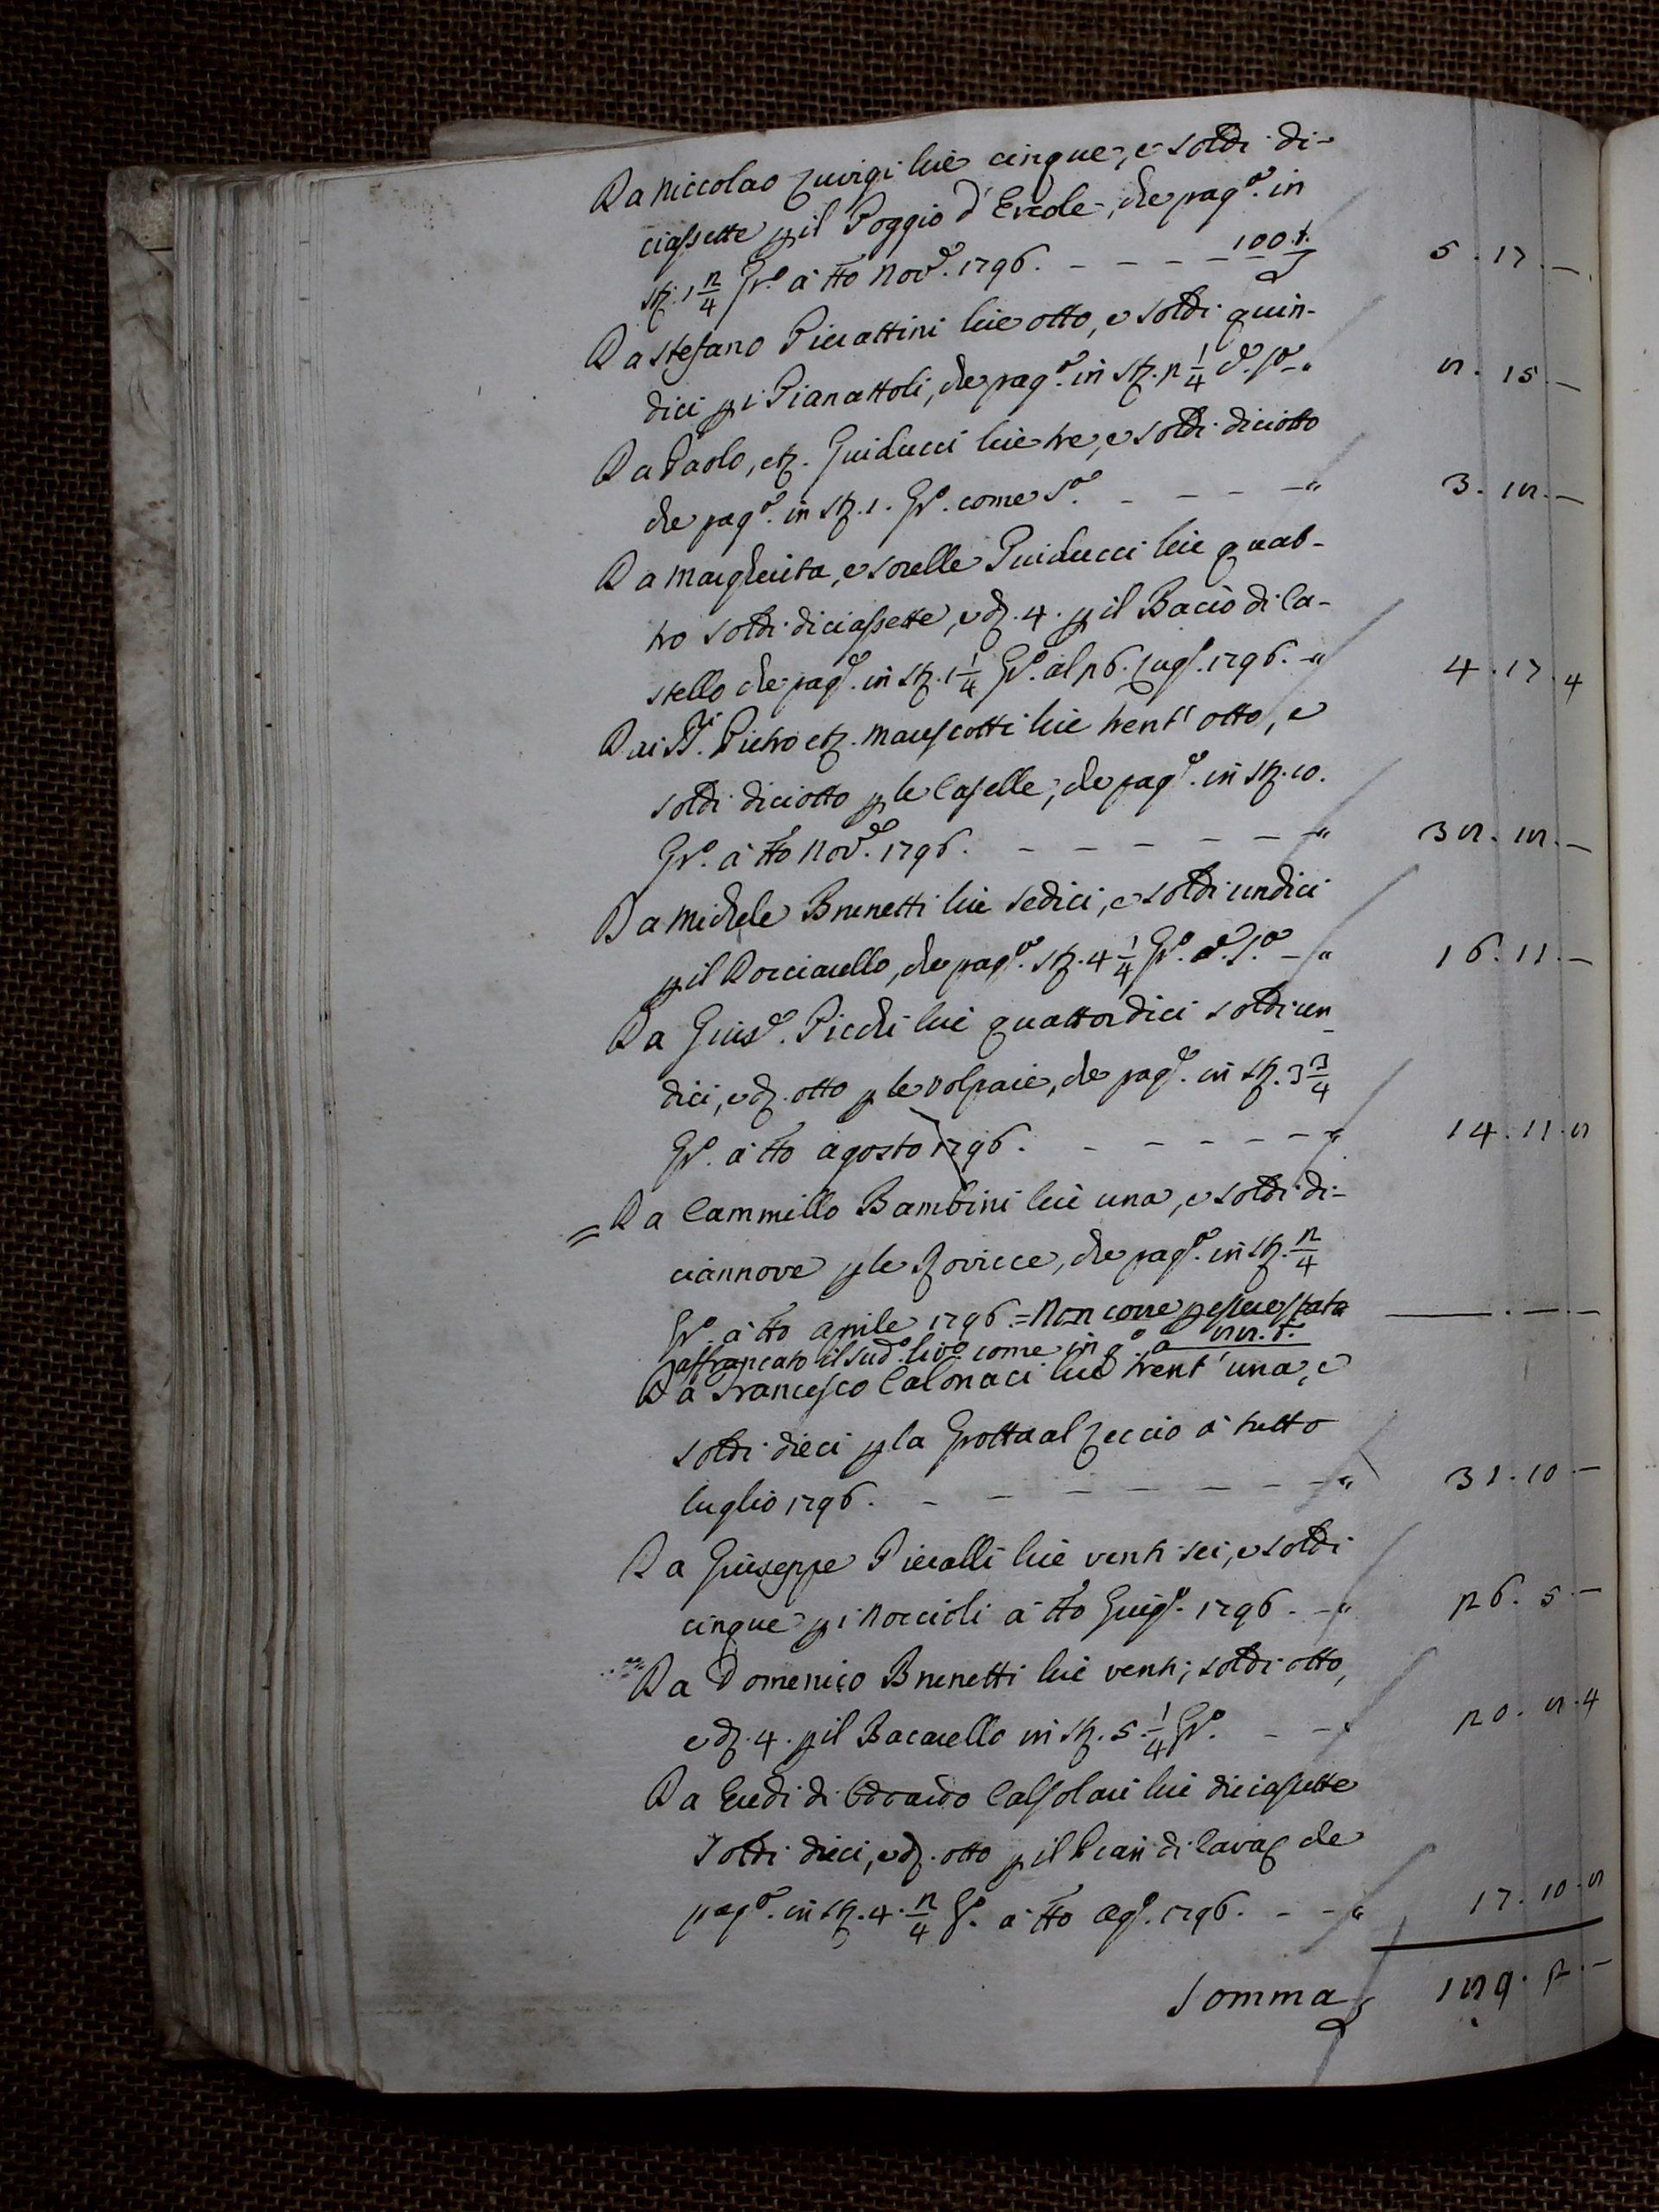 Da Niccolao Luvigi lire cinque, e soldi di-
ciassette p il Poggio d'Ercole, che pag.o in
st. 1 2/4 Gr.o à tto Nov.e 1796. - - - - 100.t. 5.17.-
Da Stefano Pierattini lire otto, e soldi quin-
dici p i Pianattoli, che pag.o in st. 2 1/4 d.o S.a - " 8.15.-
Da Paolo, et. Guiducci lire tre, e soldi diciotto
che pag.o in st. 1. Gr.o come S.a - - - - " 3.18.-
Da Margherita, e sorelle Guiducci lire quat-
tro soldi diciassette, e d. 4. p il Bacìo di Ca-
stello che pag.o in st. 1 1/4 Gr.o al 26. Lug.o 1796. - " 4.17.4
Dai SS.ri Pietro et. Mariscotti lire trent'otto, e
soldi diciotto p le Caselle, che pag.o in st. 10.
Gr.o à tto Nov.e 1796. - - - - - - " 38.18.-
Da Michele Brunetti lire sedici, e soldi undici
p il Docciarello, che pag.o st. 4 1/4 Gr.o d.o S.a - " 16.11.-
Da Gius.e Picchi lire quattordici soldi un-
dici, e d. otto p le Volpaie, che pag.o in st. 3 3/4
Gr.o à tto agosto 1796. - - - - - " 14.11.8
= Da Cammillo Bambini lire una, e soldi di-
ciannove p le Rovicce, che pag.o in st. 2/4
Gr.o à tto aprile 1796. = Non corre p essere stato -.-.-
affrancato il sud.o liv.o come in q.o a 88.t.
Da Francesco Calonaci lire trent'una, e
soldi dieci p la Grotta al Leccio à tutto
luglio 1796. - - - - - - - " 31.10.-
Da Giuseppe Pieralli lire venti sei, e soldi
cinque p i Noccioli à tto Giug.o 1796. - " 26.5.-
Da Domenico Brunetti lire venti, soldi otto,
e d. 4. p il Bacarello in st. 5. 1/4 Gr.o - - " 20.8.4
Da Eredi di Edoardo Calsolari lire diciasette
Soldi dieci, e d. otto p il Pian di Cavag che
pag.o in st. 4. 2/4 G.o à tto Ag.o 1796. - - " 17.10.8
Somma 189.2.-